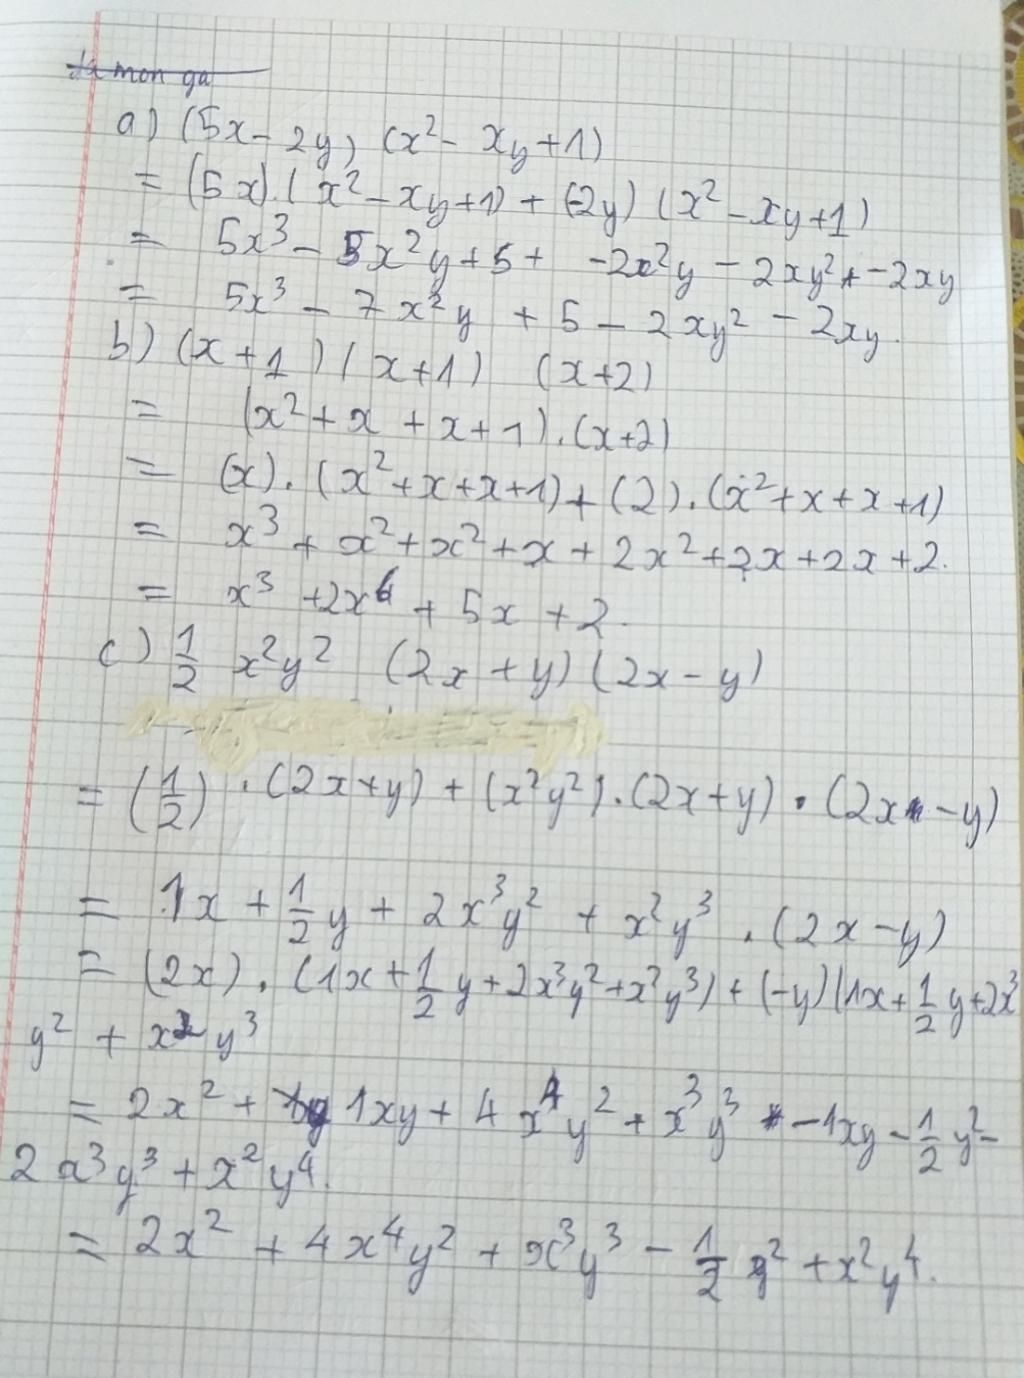 a) (5x - 2y) (x² - xy + 1)
= (5x).(x² - xy + 1) + (-2y) (x² - xy + 1)
= 5x³ - 5x²y + 5 + -2x²y - 2xy² + -2xy
= 5x³ - 7x²y + 5 - 2xy² - 2xy.
b) (x + 1) (x + 1) (x + 2)
= (x² + x + x + 1).(x + 2)
= (x).(x² + x + x + 1) + (2).(x² + x + x + 1)
= x³ + x² + x² + x + 2x² + 2x + 2x + 2.
= x³ + 2x⁶ + 5x + 2.
c) 1/2 x²y² (2x + y) (2x - y)
= (1/2) . (2x + y) + (x²y²).(2x + y) . (2x - y)
= 1x + 1/2 y + 2x³y² + x²y³ . (2x - y)
= (2x).(1x + 1/2 y + 2x³y² + x²y³) + (-y)(1x + 1/2 y + 2x³
y² + x²y³
= 2x² + 1xy + 4x⁴y² + x³y³ - 1xy - 1/2 y² -
2x³y³ + x²y⁴.
= 2x² + 4x⁴y² + x³y³ - 1/2 y² + x²y⁴.